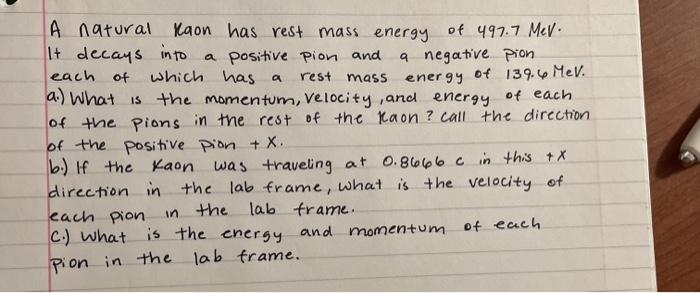 A natural Kaon has rest mass energy of 497.7 MeV.
It decays into a positive pion and a negative pion
each of which has a rest mass energy of 139.6 MeV.
a.) What is the momentum, velocity, and energy of each
of the pions in the rest of the Kaon? call the direction
of the positive pion + X.
b.) If the Kaon was traveling at 0.8666 c in this +X
direction in the lab frame, what is the velocity of
each pion in the lab frame.
C.) What is the energy and momentum of each
pion in the lab frame.